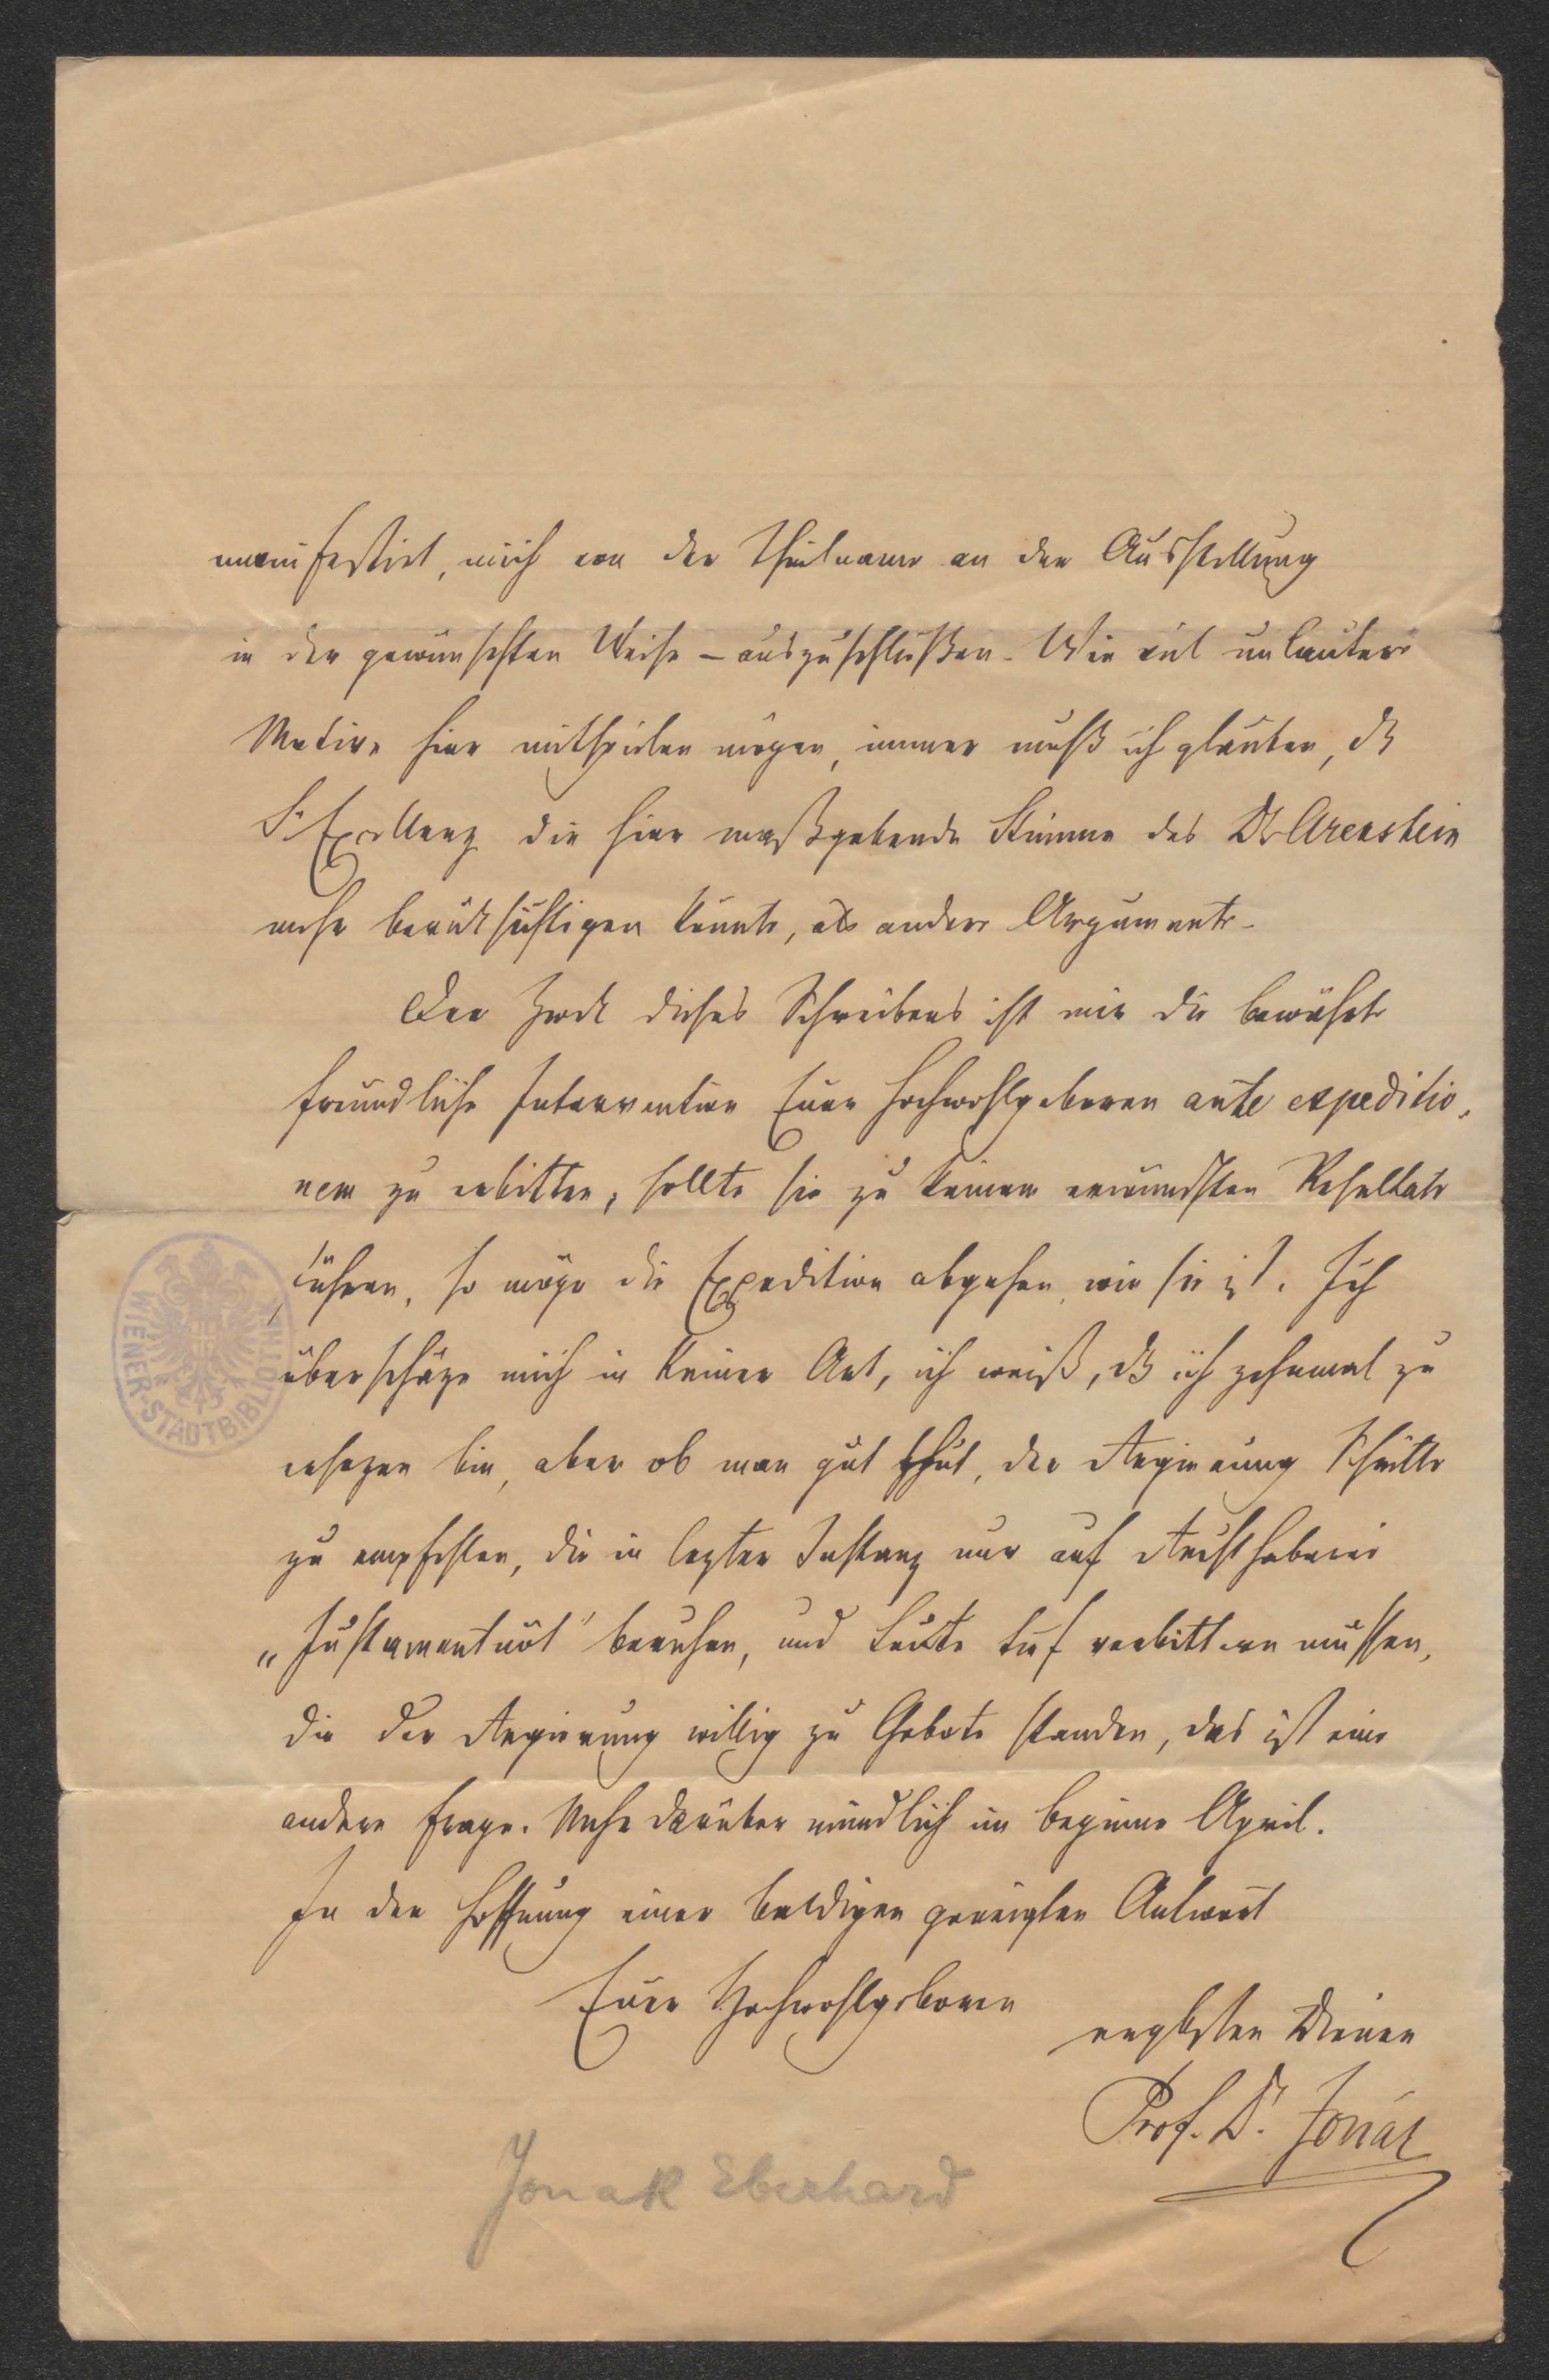 manifestirt, mich von der Theilname an der Ausstellung
in der gewünschten Weise – auszuschlußen. Wie viel unlautere
Motive hier mitspielen mögen, immer muß ich glauben, dß
Sr Exzellenz die hier maßgebende Stimme des Dr Arenstein
mehr berücksichtigen könnte, als andere Argumente.
Der Zweck dieses Schreibens ist mir die bewährte
freundliche Intervention Euer Hochwohlgeboren ante expeditio-
nem zu erbitten, sollte sie zu keinem erwünschten Resultate
führen, so möge die Expedition abgehen, wie sie ist. Ich
überschäze mich in keiner Art, ich weiß, dß ich zehnmal zu
ersezen bin, aber ob man gut thut, der Regierung Schritte
zu empfehlen, die in lezter Instanz nur auf Rechthaberei
„Justamentnöt" beruhen, und Leute tief verbittern müssen,
die der Regierung willig zu Gebote standen, das ist eine
andere Frage. Mehr darüber mündlich im beginne April.
In der Hoffnung einer baldigen geneigten Antwort
Euer Hochwohlgeboren
ergbster Diener
Prof. Dr. Jonák
Jonak Eberhard
WIENER-STADTBIBLIOTHEK